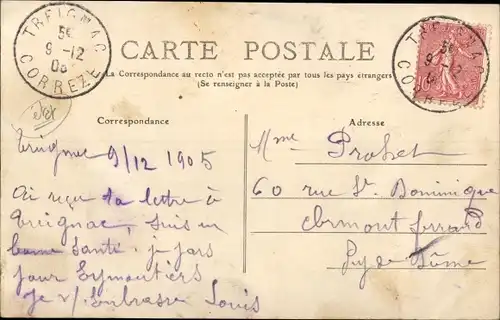 TREIGNAC
5E
9-12
05
CORREZE
CARTE POSTALE
La Correspondance au recto n'est pas acceptée par tous les pays étrangers
(Se renseigner à la Poste)
TREIGNAC
5E
9-12
CORREZE
10
Correspondance
Adresse
Treignac 9/12 1905
Ai reçu ta lettre à
Treignac, suis en
bonne santé. je pars
pour Eymoutiers
Je v/ Embrasse Louis
Mme Prohet
60 rue St. Dominique
Clermont ferrand
Puy de Dôme